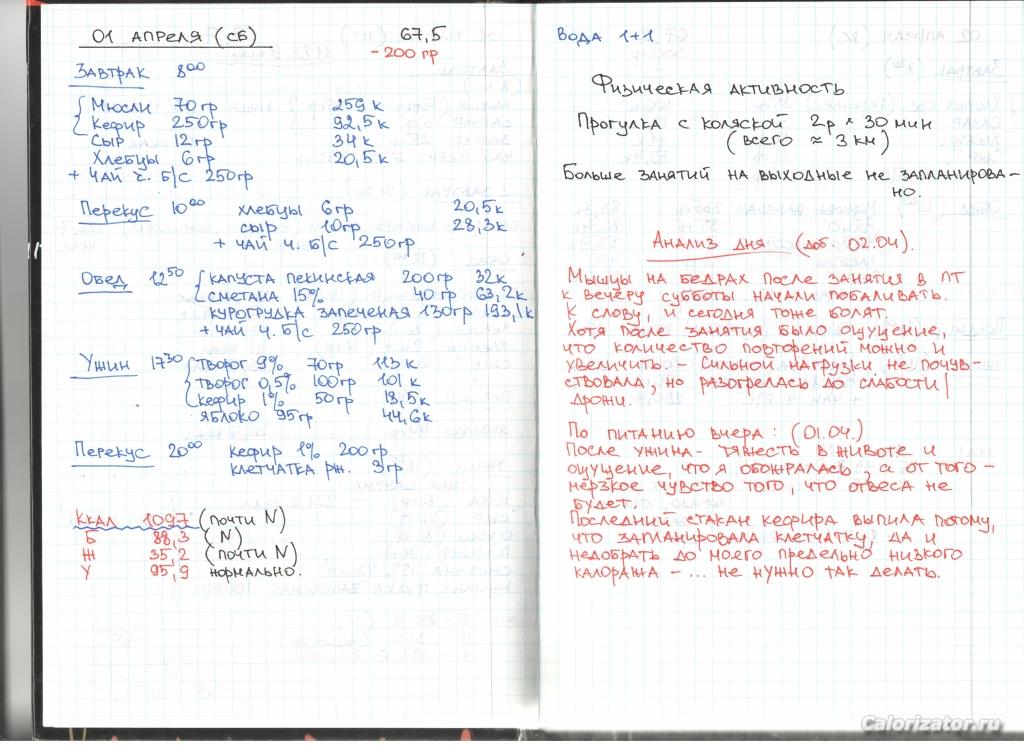 01 АПРЕЛЯ (СБ) 67,5
- 200 гр
ЗАВТРАК 8⁰⁰
Мюсли 70гр 259 к
Кефир 250гр 92,5к
Сыр 12гр 34к
Хлебцы 6гр 20,5к
+ ЧАЙ Ч. Б/С 250гр
Перекус 10⁰⁰ хлебцы 6гр 20,5к
сыр 10гр 28,3к
+ ЧАЙ Ч. Б/С 250гр
Обед 12⁵⁰ КАПУСТА ПЕКИНСКАЯ 200гр 32к
СМЕТАНА 15% 40гр 63,2к
КУРОГРУДКА ЗАПЕЧЕНАЯ 130гр 193,1к
+ ЧАЙ Ч. Б/С 250гр
Ужин 17³⁰ ТВОРОГ 9% 70гр 113 к
ТВОРОГ 0,5% 100гр 101 к
КЕФИР 1% 50гр 18,5к
ЯБЛОКО 95гр 44,6к
Перекус 20⁰⁰ КЕФИР 1% 200гр
КЛЕТЧАТКА РЖ. 9гр
ККАЛ 1097 (почти N)
Б 88,3 (N)
Ж 35,2 (почти N)
У 95,9 НОРМАЛЬНО.
ВОДА 1+1
Физическая активность
Прогулка с коляской 2р × 30 мин
(всего ≈ 3 км)
Больше занятий на выходные не запланирова-
но.
Анализ дня (доб 02.04).
Мышцы на бедрах после занятия в ПТ
к вечеру субботы начали побаливать.
К слову, и сегодня тоже болят.
Хотя после занятия было ощущение,
что количество повторений можно и
увеличить - сильной нагрузки не почув-
ствовала, но разогрелась до слабости/
дрожи.
По питанию вчера: (01.04.)
После ужина - тяжесть в животе и
ощущение, что я обожралась, а от того -
мерзкое чувство того, что отвеса не
будет.
Последний стакан кефира выпила потому,
что запланировала клетчатку, да и
недобрать до моего предельно низкого
калоража - ... не нужно так делать.
Calorizator.ru